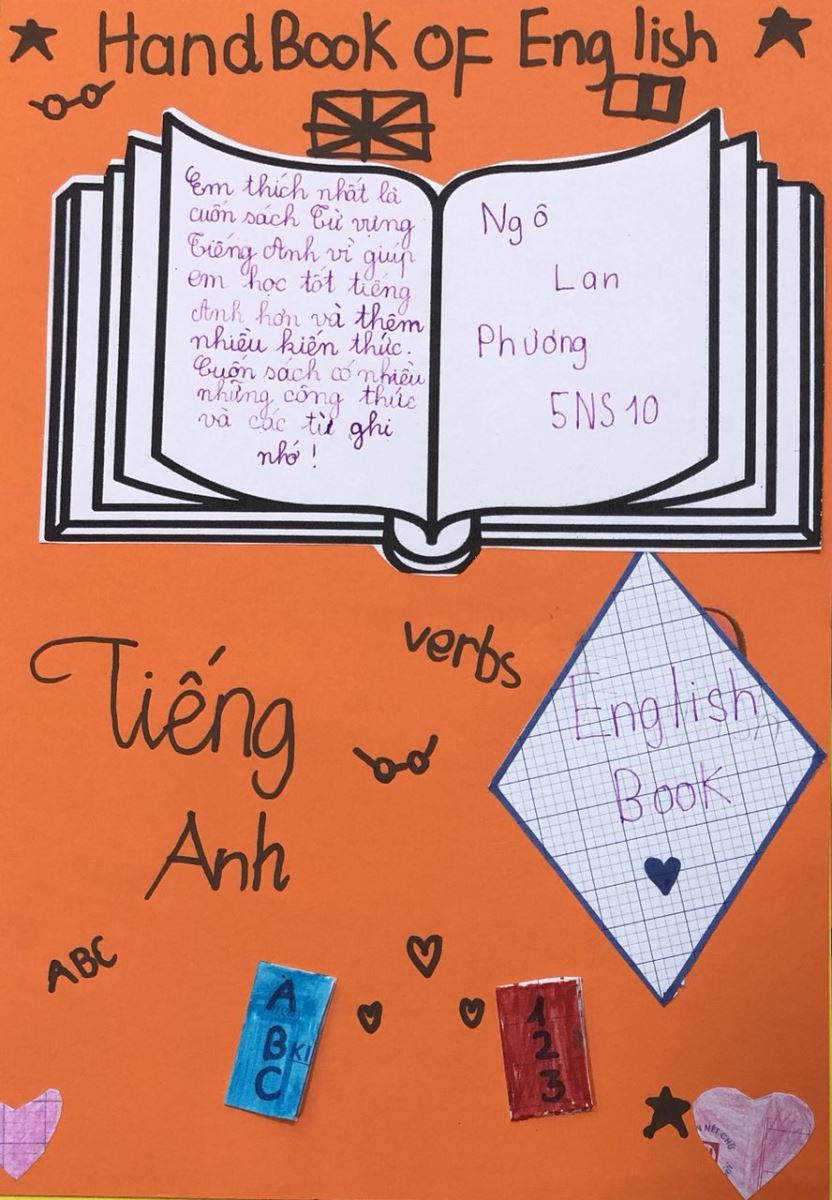 HandBook OF English
Em thích nhất là
cuốn sách Từ vựng
Tiếng Anh vì giúp
em học tốt tiếng
Anh hơn và thêm
nhiều kiến thức.
Cuốn sách có nhiều
những công thức
và các từ ghi
nhớ!
Ngô
Lan
Phương
5NS10
verbs
Tiếng
Anh
English
Book
ABC
A
B
C
KI
1
2
3
N NÉT CHỮ